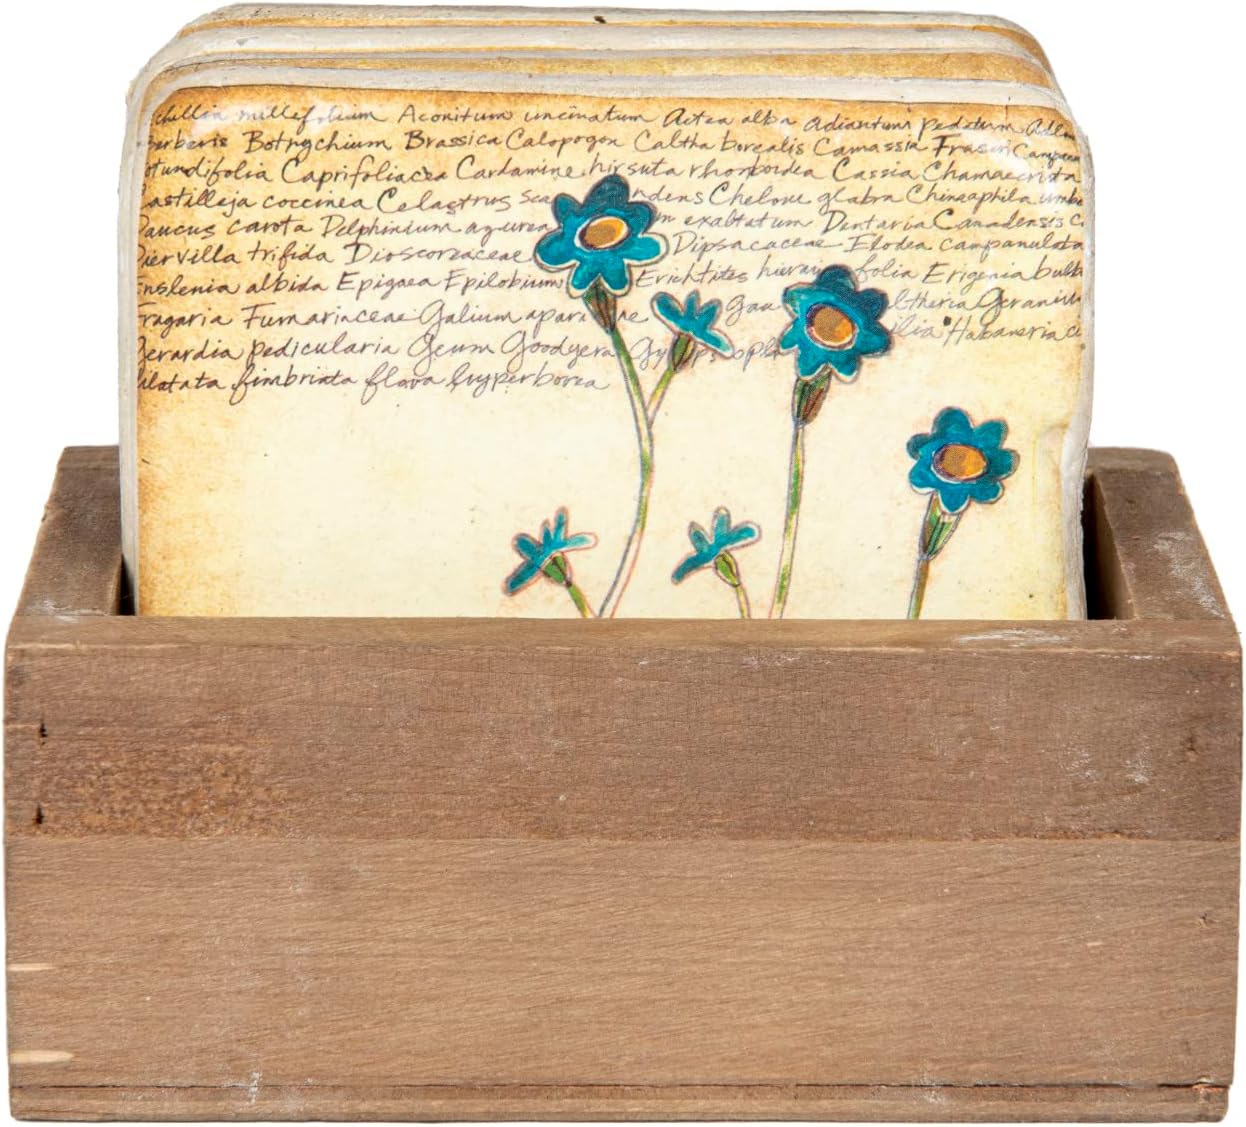 chillia millefolium Aconitum uncinatum Actea alba adiantum pedatum Adlu
Berberis Botrychium Brassica Calopogon Caltha borealis Camassia Fraseri Campanu
otundifolia Caprifoliacea Cardamine hirsuta rhomboidea Cassia Chamaecrista
Castilleja coccinea Celastrus Sca ndens Chelone glabra Chimaphila umbe
Daucus carota Delphinium azureum exaltatum Dentaria Canadensis C
Diervilla trifida Dioscoreaceae Dipsacaceae Elodea campanulata
Enslenia albida Epigaea Epilobium Erichtites folia Erigenia bulb
Fragaria Fumariaceae Galium apari ne Gau ltheria Geranium
Gerardia pedicularia Geum Goodyera Habanaria ci
ilatata fimbriata flava hyperborea